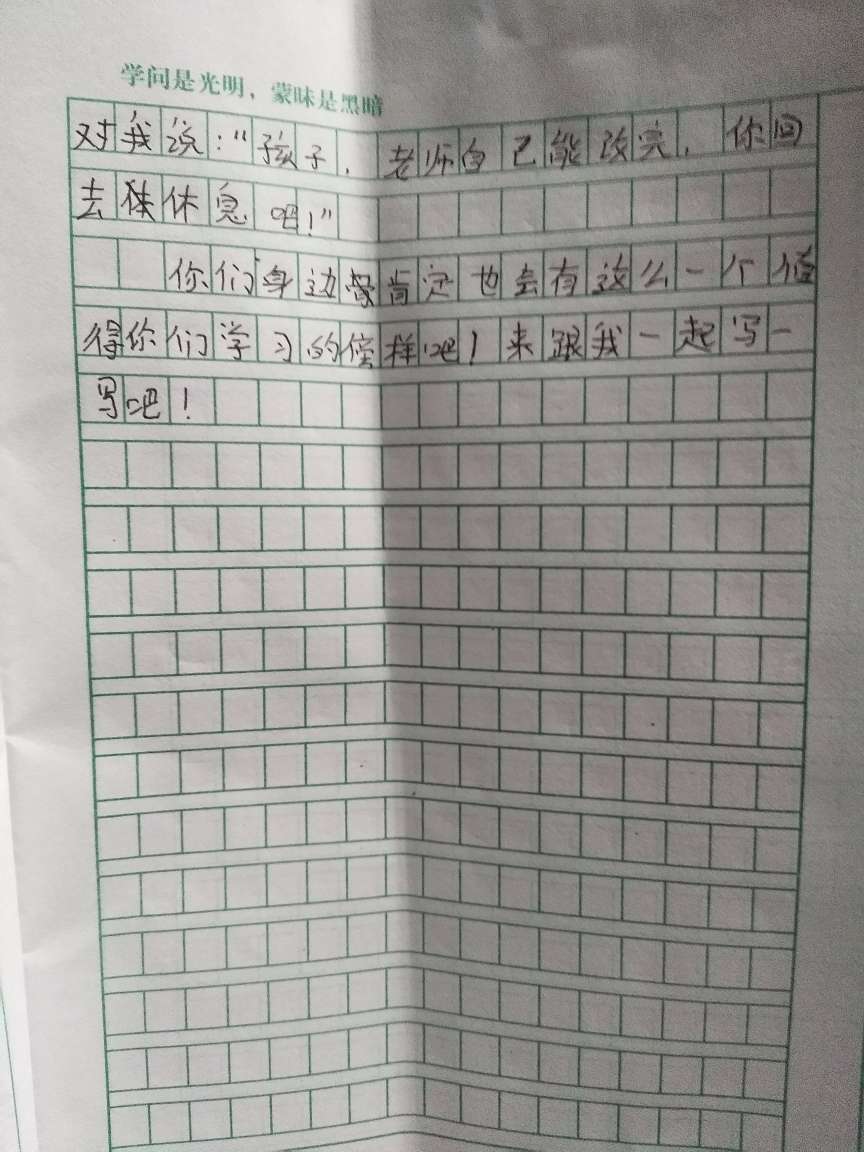 学问是光明，蒙昧是黑暗
对我说：“孩子，老师自己能改完，你回
去休息吧！”
你们身边肯定也会有这么一个值
得你们学习的榜样吧！来跟我一起写一
写吧！